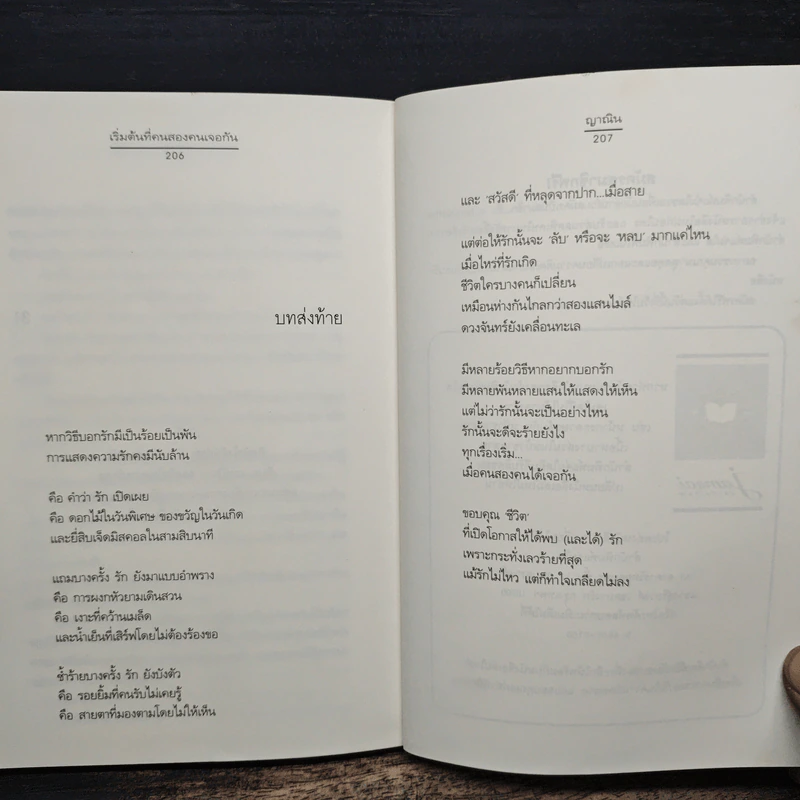 เริ่มต้นที่คนสองคนเจอกัน
206
บทส่งท้าย
หากวิธีบอกรักมีเป็นร้อยเป็นพัน
การแสดงความรักคงมีนับล้าน
คือ คำว่า รัก เปิดเผย
คือ ดอกไม้ในวันพิเศษ ของขวัญในวันเกิด
และยี่สิบเจ็ดมิสคอลในสามสิบนาที
แถมบางครั้ง รัก ยังมาแบบอำพราง
คือ การผงกหัวยามเดินสวน
คือ เงาะที่คว้านเมล็ด
และน้ำเย็นที่เสิร์ฟโดยไม่ต้องร้องขอ
ซ้ำร้ายบางครั้ง รัก ยังบังตัว
คือ รอยยิ้มที่คนรับไม่เคยรู้
คือ สายตาที่มองตามโดยไม่ให้เห็น
ญาณิน
207
และ 'สวัสดี' ที่หลุดจากปาก...เมื่อสาย
แต่ต่อให้รักนั้นจะ 'ลับ' หรือจะ 'หลบ' มากแค่ไหน
เมื่อไหร่ที่รักเกิด
ชีวิตใครบางคนก็เปลี่ยน
เหมือนห่างกันไกลกว่าสองแสนไมล์
ดวงจันทร์ยังเคลื่อนทะเล
มีหลายร้อยวิธีหากอยากบอกรัก
มีหลายพันหลายแสนให้แสดงให้เห็น
แต่ไม่ว่ารักนั้นจะเป็นอย่างไหน
รักนั้นจะดีจะร้ายยังไง
ทุกเรื่องเริ่ม...
เมื่อคนสองคนได้เจอกัน
ขอบคุณ 'ชีวิต'
ที่เปิดโอกาสให้ได้พบ (และได้) รัก
เพราะกระทั่งเลวร้ายที่สุด
แม้รักไม่ไหว แต่ก็ทำใจเกลียดไม่ลง